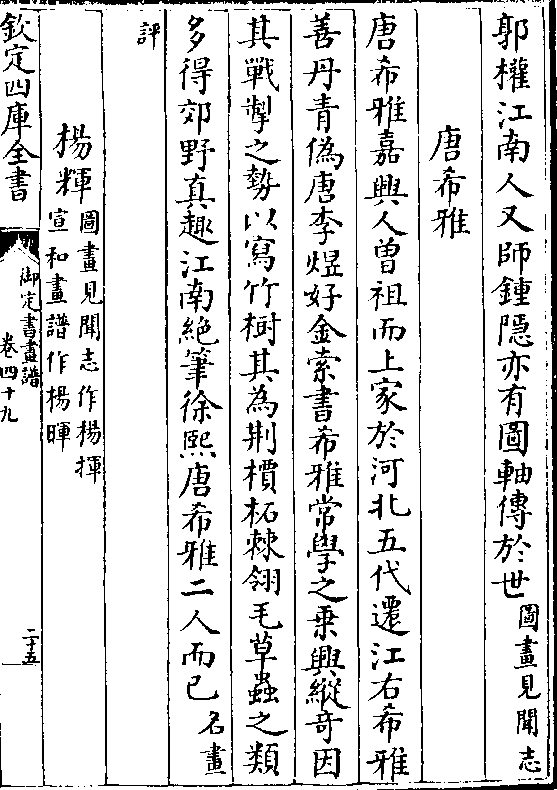 郭權江南人又師鍾隱亦有圖軸傳於世圖畫見聞志
唐希雅
唐希雅嘉興人曾祖而上家於河北五代還江右希雅
善丹青偽唐李煜好金索書希雅常學之乗興縱奇因
其戰掣之勢以寫竹樹其為荆檟柘棘翎毛草蟲之類
多得郊野真趣江南絶筆徐熙唐希雅二人而已名畫
評
楊輝圖畫見聞志作楊揮
宣和畫譜作楊暉
欽定四庫全書
御定書畫譜
卷四十九
二十五